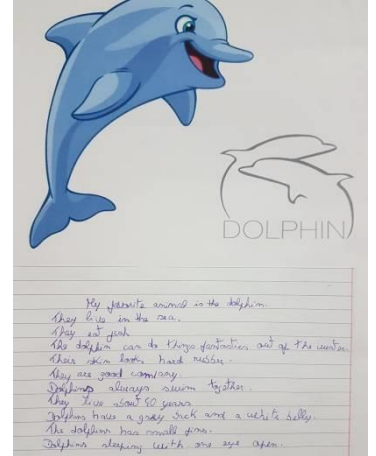 DOLPHIN
My favorite animal is the dolphin.
They live in the sea.
They eat fish
The dolphin can do things fantastics out of the water.
Their skin looks hard rubber.
They are good company.
Dolphins always swim together.
They live about 50 years
Dolphins have a grey back and a white belly.
The dolphins has small fins.
Dolphins sleeping with one eye open.